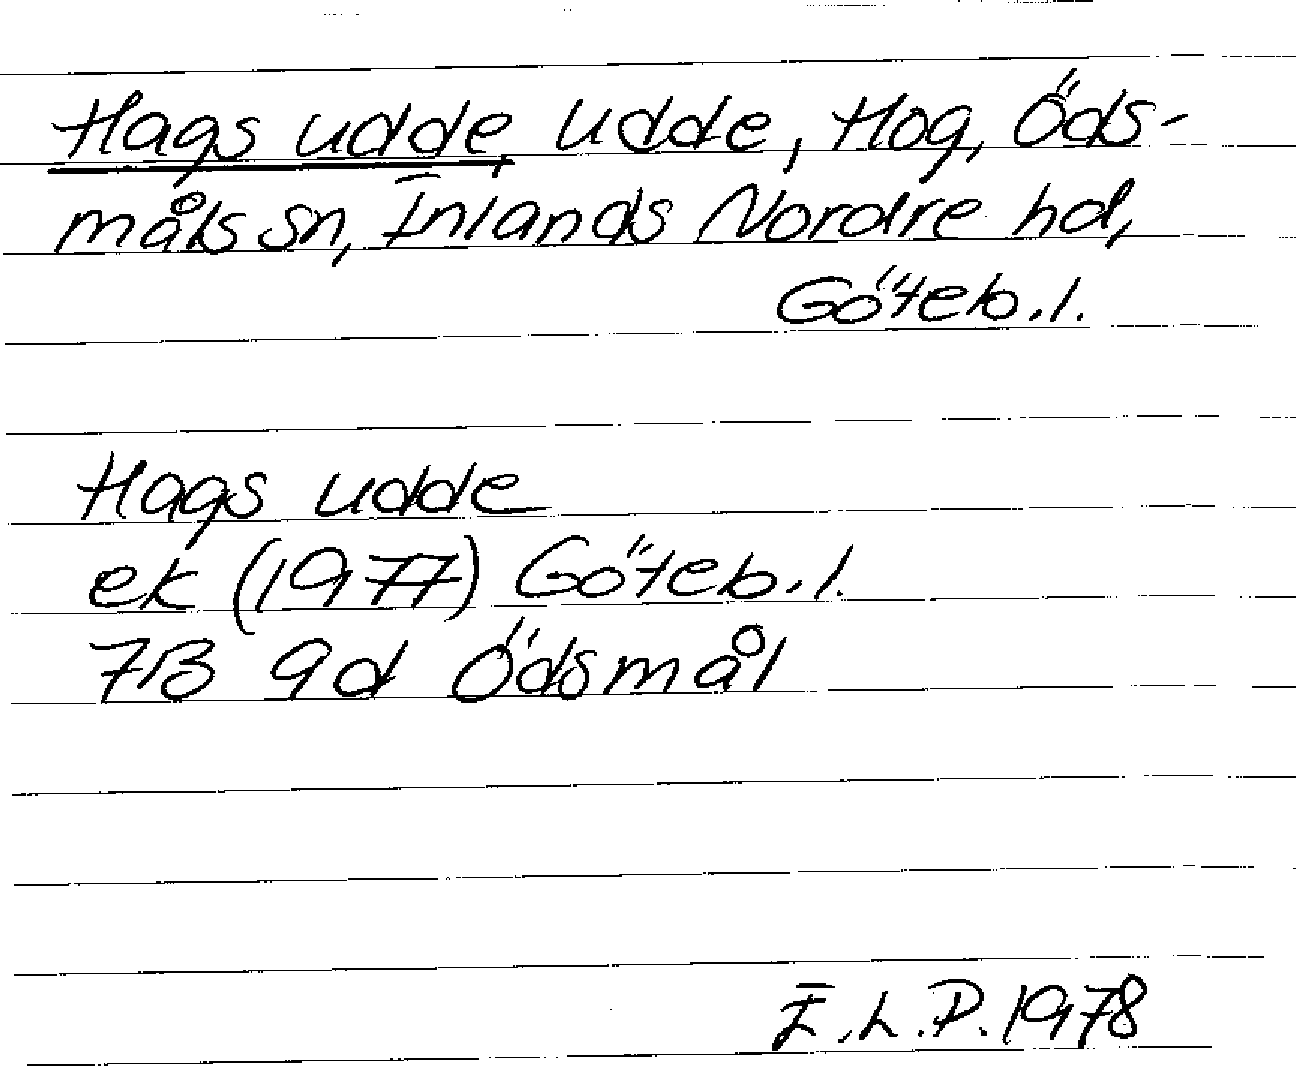 Hags udde, udde, Hog, Öds-
måls sn, Inlands Nordre hd,
Göteb.l.
Hags udde
ek (1977) Göteb.l.
7B 9d Ödsmål
I.L.P. 1978